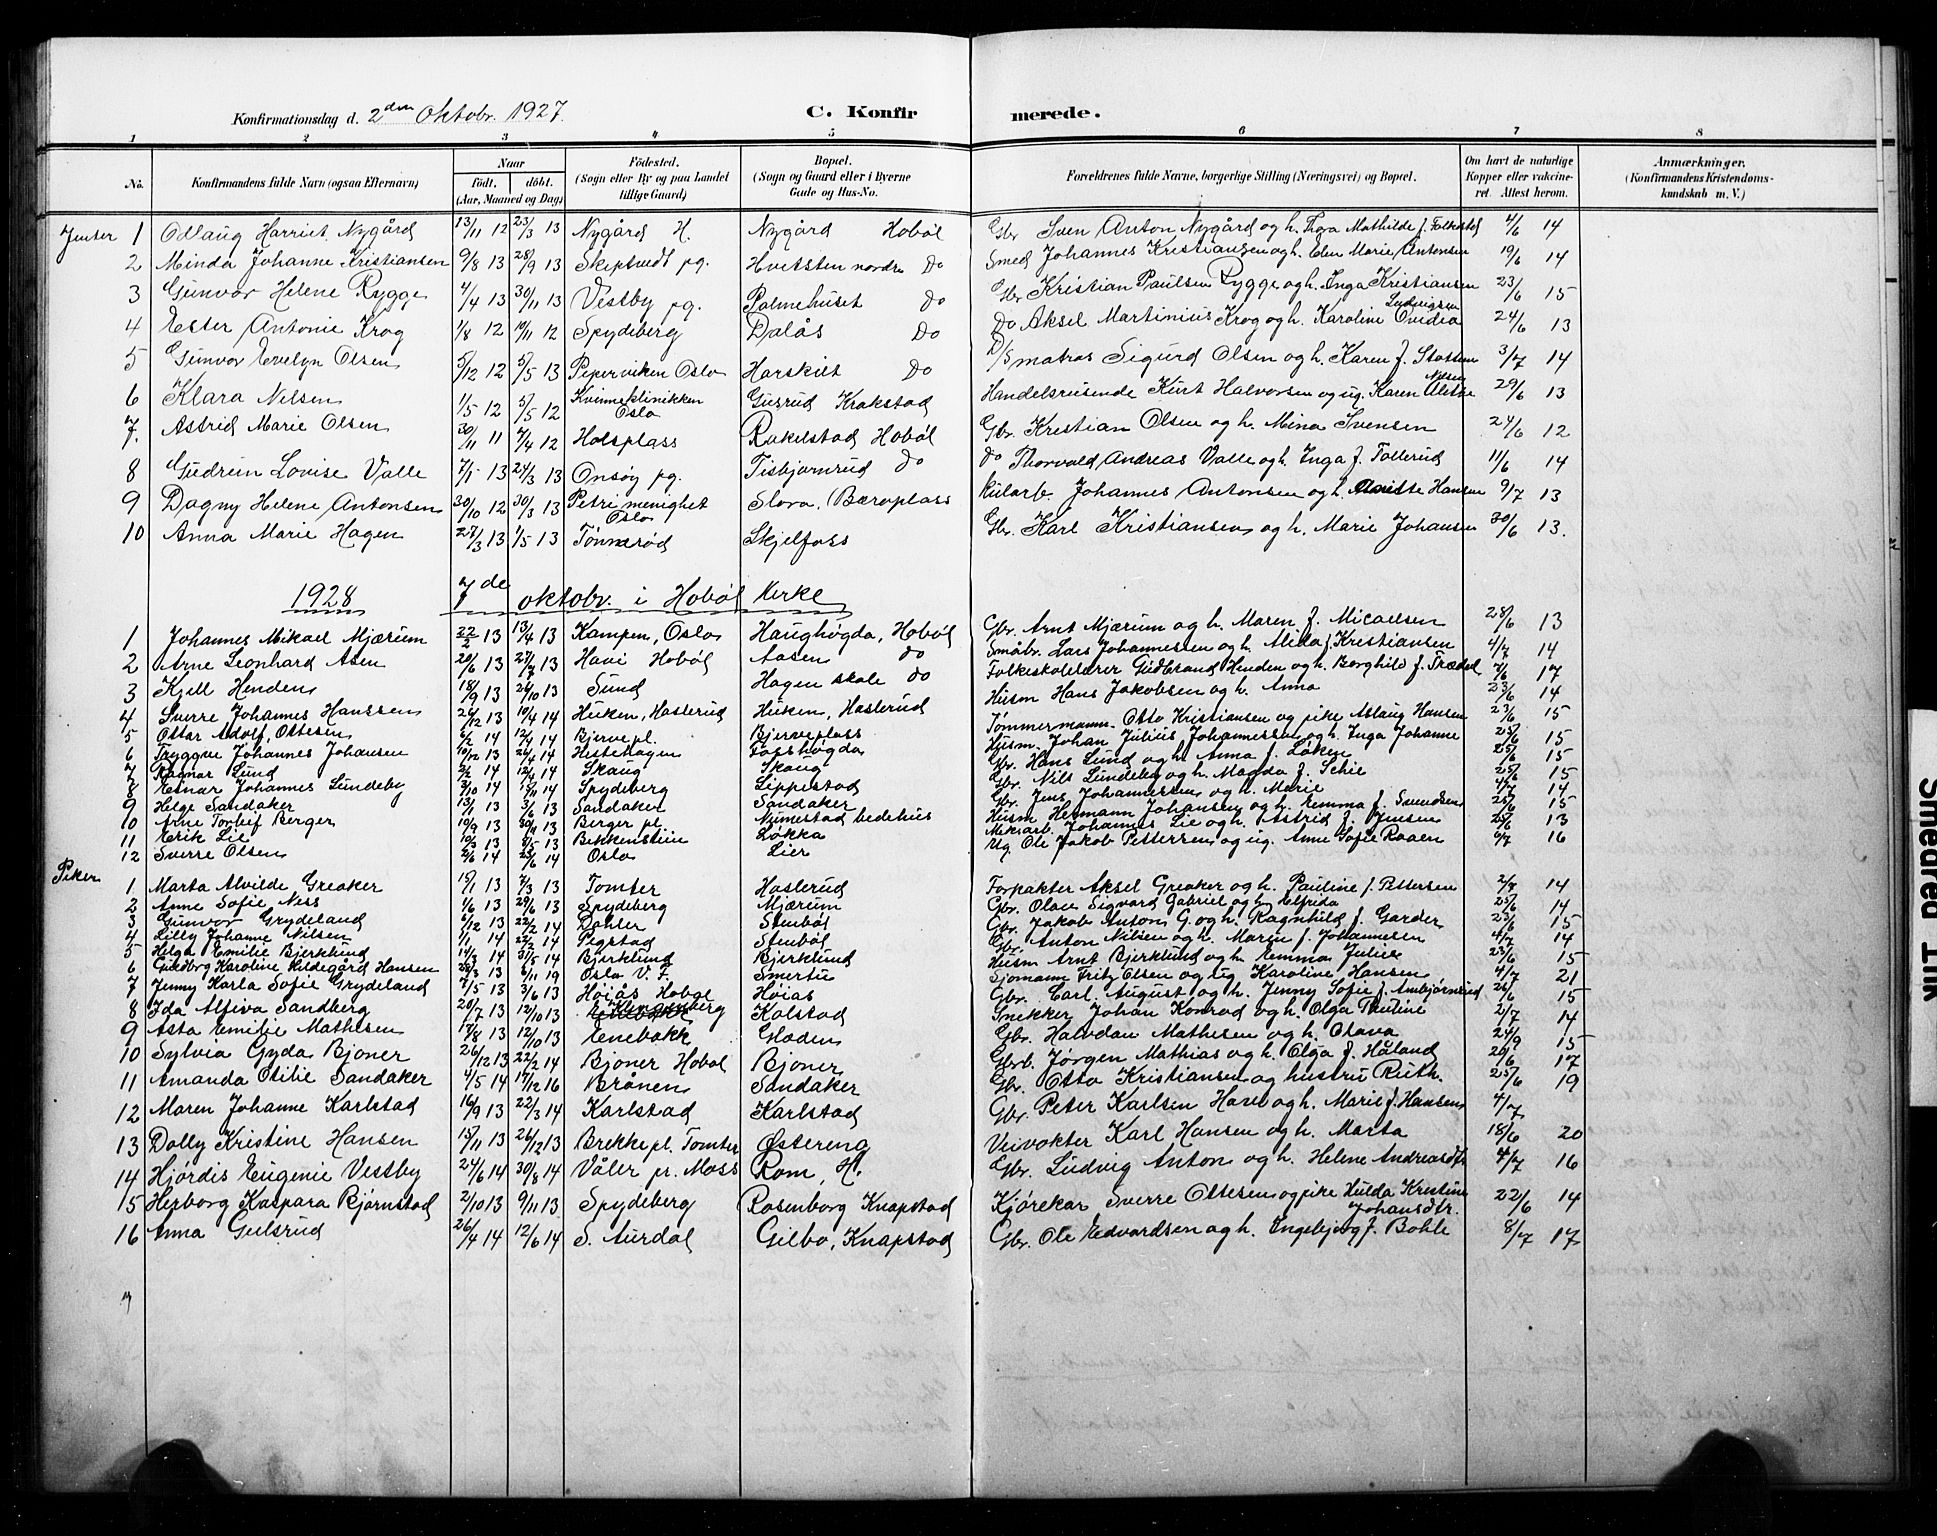 Konfirmationsdag d. 2den Oktobr. 1927. C. Konfirmerede.
1 2 3 4 5 6 7 8
No. Konfirmandens fulde Navn (ogsaa Efternavn) Naar født. døbt. (Aar, Maaned og Dag) Fødested. (Sogn eller By og paa Landet tillige Gaard) Bopæl. (Sogn og Gaard eller i Byerne Gade og Hus-No.) Forældrenes fulde Navne, borgerlige Stilling (Næringsvei) og Bopæl. Om havt de naturlige Kopper eller vaccineret. Attest herom. Anmærkninger. (Konfirmandens Kristendomskundskab m. V.)
Jenter 1 Odlaug Harriet Nygård 13/11 12 23/3 13 Nygård H. Nygård Hobøl Gbr. Sven Anton Nygård og h. Thora Mathilde f. Folkestad 4/6 14
2 Minda Johanne Kristiansen 9/8 13 28/9 13 Skiptvedt pg. Hvitsten nordre Do Smed Johannes Kristiansen og h. Elen Marie Antonsen 19/6 14
3 Gunvor Helene Rygge 4/4 13 30/11 13 Vestby pg. Palmehuset Do Gbr. Kristian Paulsen Rygge og h. Inga Kristiansen 23/6 15
4 Ester Antonie Krog 1/8 12 10/11 12 Spydeberg Dalås Do Do Aksel Martinius Krog og h. Karoline Ovidia Ludvigsen 24/6 13
5 Gunvor Evelyn Olsen 5/12 12 5/5 13 Piperviken Oslo Harskilt Do D/S matros Sigurd Olsen og h. Karen f. 3/7 14
6 Klara Nilsen 1/5 12 5/5 12 Kvinneklinikken Oslo Gusrud Krakstad Handelsreisende Kurt Halvorsen og ug. Karen Alette Nilsen 29/6 13
7. Astrid Marie Olsen 30/11 11 7/4 12 Holsplass Rakelstad Hobøl Gbr. Kristian Olsen og h. Mina Svensen 24/6 12
8 Gudrun Lovise Valle 7/1 13 24/3 13 Onsøy pg. Tisbjørnrud Do Do Thorvald Andreas Valle og h. Inga f. Tollerud 11/6 14
9 Dagny Helene Antonsen 30/10 12 30/3 13 Petri menighet Oslo Slora, (Bæroplass Kularb. Johannes Antonsen og h. Hansen 9/7 13
10 Anna Marie Hagen 27/3 13 1/5 13 Tønnerød Skjelfoss Gbr. Karl Kristiansen og h. Marie Johansen 30/6 13.
1928 7de oktobr. i Hobøl Kirke
1 Johannes Mikael Mjærum 22/2 13 13/4 13 Kampen, Oslo Haughøgda, Hobøl Gbr. Arnt Mjærum og h. Maren f. Micaelsen 28/6 13
2 Arne Leonhard Asen 20/6 13 27/7 13 Havi Hobøl Aasen do Småbr. Lars Johannessen og h. Alida f. Kristiansen 4/7 14
3 Kjell Henden 18/9 13 26/10 13 Sund Hagen skole do Folkeskolelærer Gudbrand Henden og h. Borghild f. Trædal 7/6 17
4 Sverre Johannes Hanssen 24/12 13 10/4 14 Huken, Haslerud Huken, Haslerud Husm Hans Jakobsen og h. Anna 23/6 14
5 Ottar Adolf, Ottesen 6/2 14 12/4 14 Bjerve pl. Bjerveplass Tømmermann Otto Kristiansen og pike Aslaug Hansen 23/6 15
6 Tryggve Johannes Johansen 10/12 13 26/4 14 Hestehagen Fosshøgda Husm. Johan Julius Johannessen og h. Inga Johanne 23/6 15
7 Ragnar Lund 2/2 14 12/4 14 Skaug Skaug Gbr. Hans Lund og h. Anna f. Løken 25/6 15
8 Einar Johannes Lundeby Spydeberg Lippestad Gbr. Nils Lundeby og h. Magda f. Schie 25/6 15
9 Helge Sandaker 13/1 13 3/6 13 Sandaker Sandaker Gbr. Jens Johannessen og h. Marie 4/7 14
10 Arne Torleif Berger 19/9 13 30/11 13 Berger pl. Næmestad bedehus Husm Hermann Johansen og h. Emma f. Svendsen 25/6 15
11 Erik Lie 10/3 13 8/5 13 Bekkenstiin Løkka Mekarb. Johannes Lie og h. Astrid f. Jensen 25/6 13
12 Sverre Olsen 2/6 14 23/6 14 Oslo Lier Ug. Ole Jakob Pettersen og ug. Anne Sofie Raaen 6/7 16
Piker 1 Marta Alvilde Greaker 15/1 13 7/3 13 Tomter Haslerud Forpakter Aksel Greaker og h. Pauline f. Pettersen 2/8 14
2 Anne Sofie Ness 1/6 13 29/6 13 Spydeberg Mjærum Gbr. Olav Sigvard Gabriel og h. Alfrida 25/6 14
3 Gunvor Grydeland 6/12 13 22/2 14 Dahler Stenbøl Gbr. Jakob Anton G. og h. Ragnhild f. Garder 23/6 15
4 Lilly Johanne Nilsen 1/1 14 22/2 14 Pigstad Stenbøl Gbr. Anton Nilsen og h. Maren f. Johannesen 4/7 14
5 Helga Emilie Bjerklund 14/3 14 31/5 14 Bjerklund Bjerklund Husm Arnt Bjerklund og h. Emma Julie 23/6 15
6 Guldborg Karoline Hildegård Hansen 28/3 13 6/11 19 Oslo V. F. Smertu Sjømann Fritz Olsen og ug Karoline Hansen 4/7 21
7 Jenny Karla Sofie Grydeland 7/5 13 3/6 13 Høiås Hobøl Høiås Gbr. Carl August og h. Jenny Sofie f. Ambjørnsrud 28/6 15
8 Ida Alfiva Sandberg 20/7 13 12/10 13 Klungenberg Kolstad Snekker Johan Konrad og h. Olga Pauline 2/7 14
9 Asta Emilie Mathisen 17/8 13 12/10 13 Enebakk Gloden Gbr. Halvdan Mathisen og h. Olava 24/9 15
10 Sylvia Gyda Bjoner 26/12 13 22/2 14 Bjoner Hobøl Bjoner Gbrb. Jørgen Mathias og h. Olga f. Håland 29/6 17
11 Amanda Otilie Sandaker 4/5 14 17/12 16 Brånen Sandaker Gbr. Otto Kristiansen og hustru Ruth. 25/6 19
12 Maren Johanne Karlstad 16/9 13 22/3 14 Karlstad Karlstad Gbr. Peter Karlsen Have og h. Marie f. Hansen 4/7
13 Dolly Kristine Hansen 15/11 13 26/12 13 Brekke pl. Tomter Østereng Veivokter Karl Hansen og h. Marta 18/6 20
14 Hjørdis Eugenie Vestby 24/6 14 30/8 14 Våler pr. Moss Rom, H. Gbr. Ludvig Anton og h. Helene Andreasdtr 4/7 16
15 Herborg Kaspara Bjørnstad 2/10 13 9/11 13 Spydeberg Rosenborg Knapstad Kjørekar Sverre Ottesen og pike Hulda Kristine Johansdtr. 22/6 14
16 Anna Gulsrud 26/4 14 12/6 14 S. Aurdal Gilbo, Knapstad Gbr. Ole Edvardsen og h. Engebjørg f. Bohle 8/7 17
Smedred Trk